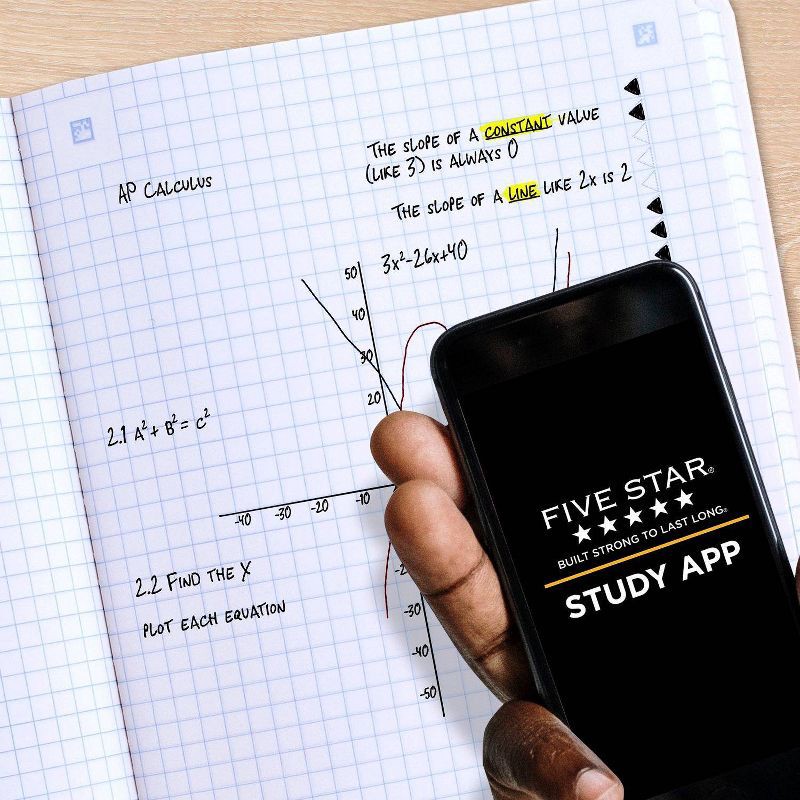 THE SLOPE OF A CONSTANT VALUE
(LIKE 3) IS ALWAYS 0
AP CALCULUS
THE SLOPE OF A LINE LIKE 2x IS 2
3x²-26x+40
50
40
30
20
2.1 A² + B² = C²
-40 -30 -20 -10
2.2 FIND THE X
PLOT EACH EQUATION
-30
-40
-50
FIVE STAR®
BUILT STRONG TO LAST LONG®
STUDY APP